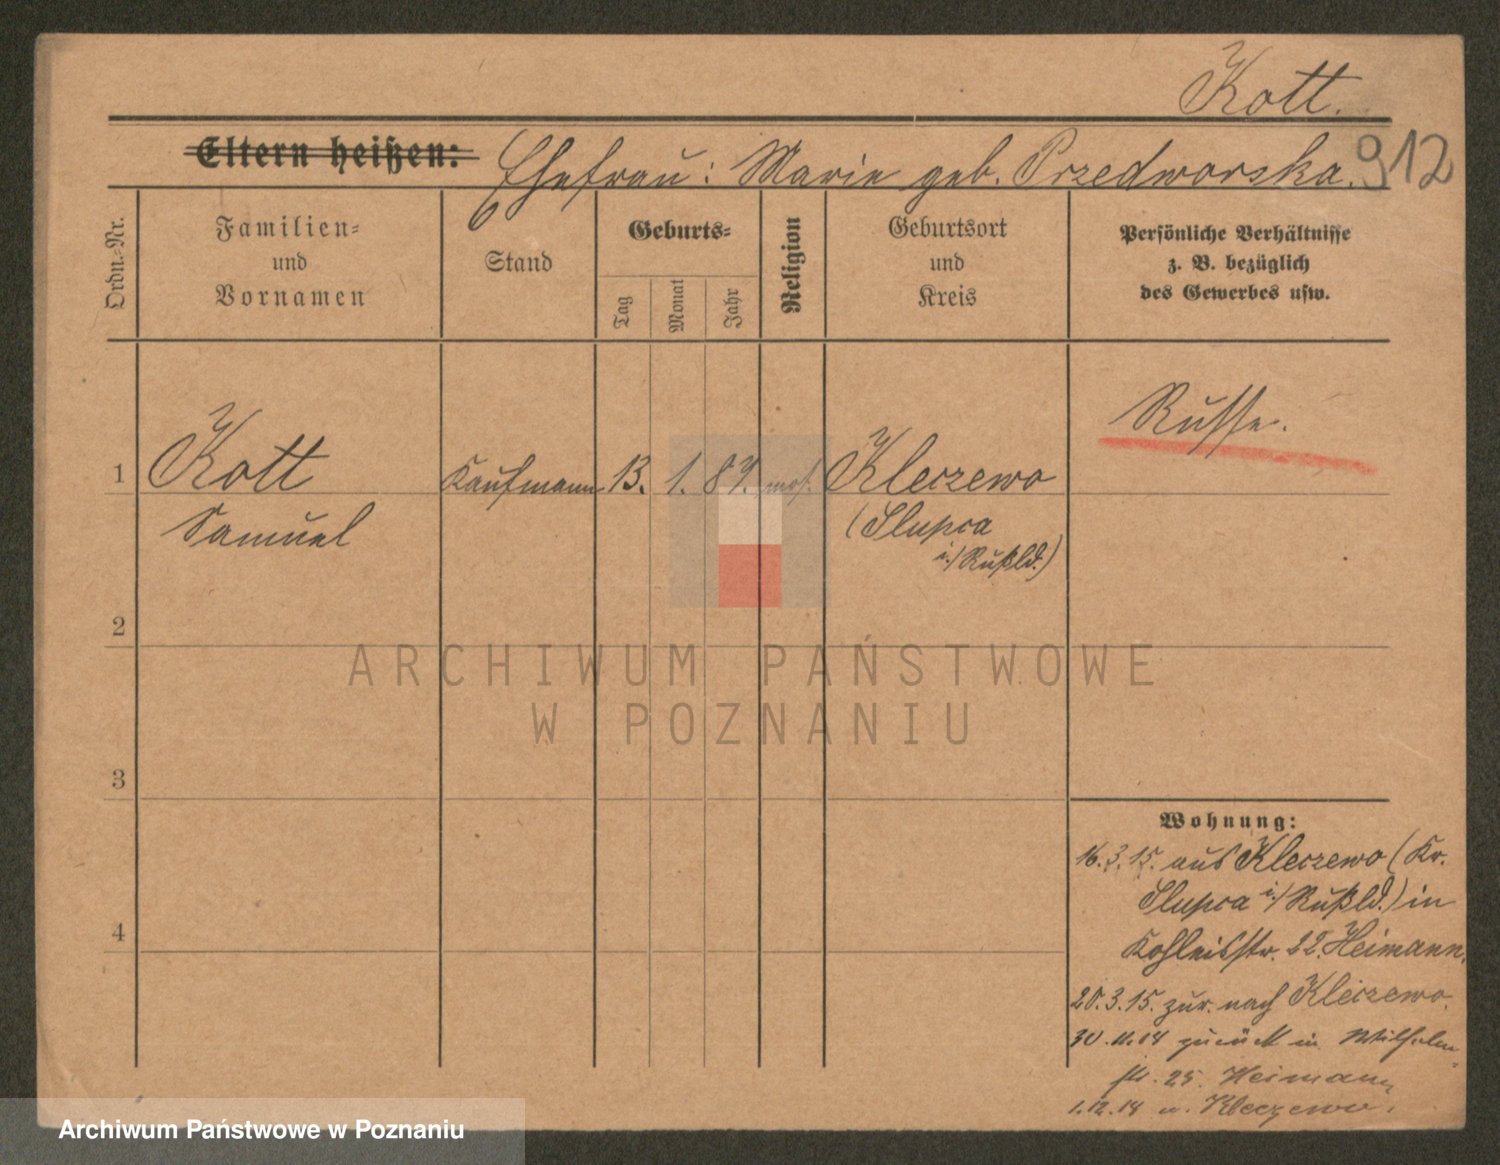 Kott.
Eltern heißen: Ehefrau: Marie geb. Przedworska.
912
Ordn.-Nr.
Familien-
und
Vornamen
Stand
Geburts-
Tag
Monat
Jahr
Religion
Geburtsort
und
Kreis
Persönliche Verhältnisse
z. B. bezüglich
des Gewerbes usw.
Russe.
1 Kott Kaufmann 13. 1. 87. mos. Kleczewo
Samuel (Slupca
i./Rußld.)
2
3
4
ARCHIWUM PAŃSTWOWE
W POZNANIU
Wohnung:
16.3.15. aus Kleczewo (Kr.
Slupca i./Rußld.) in
22. Heimann.
20.3.15. zur. nach Kleczewo.
30.11.14 zurück in Wilhelm-
str. 25. Heimann
1.12.14 n. Kleczewo.
Archiwum Państwowe w Poznaniu